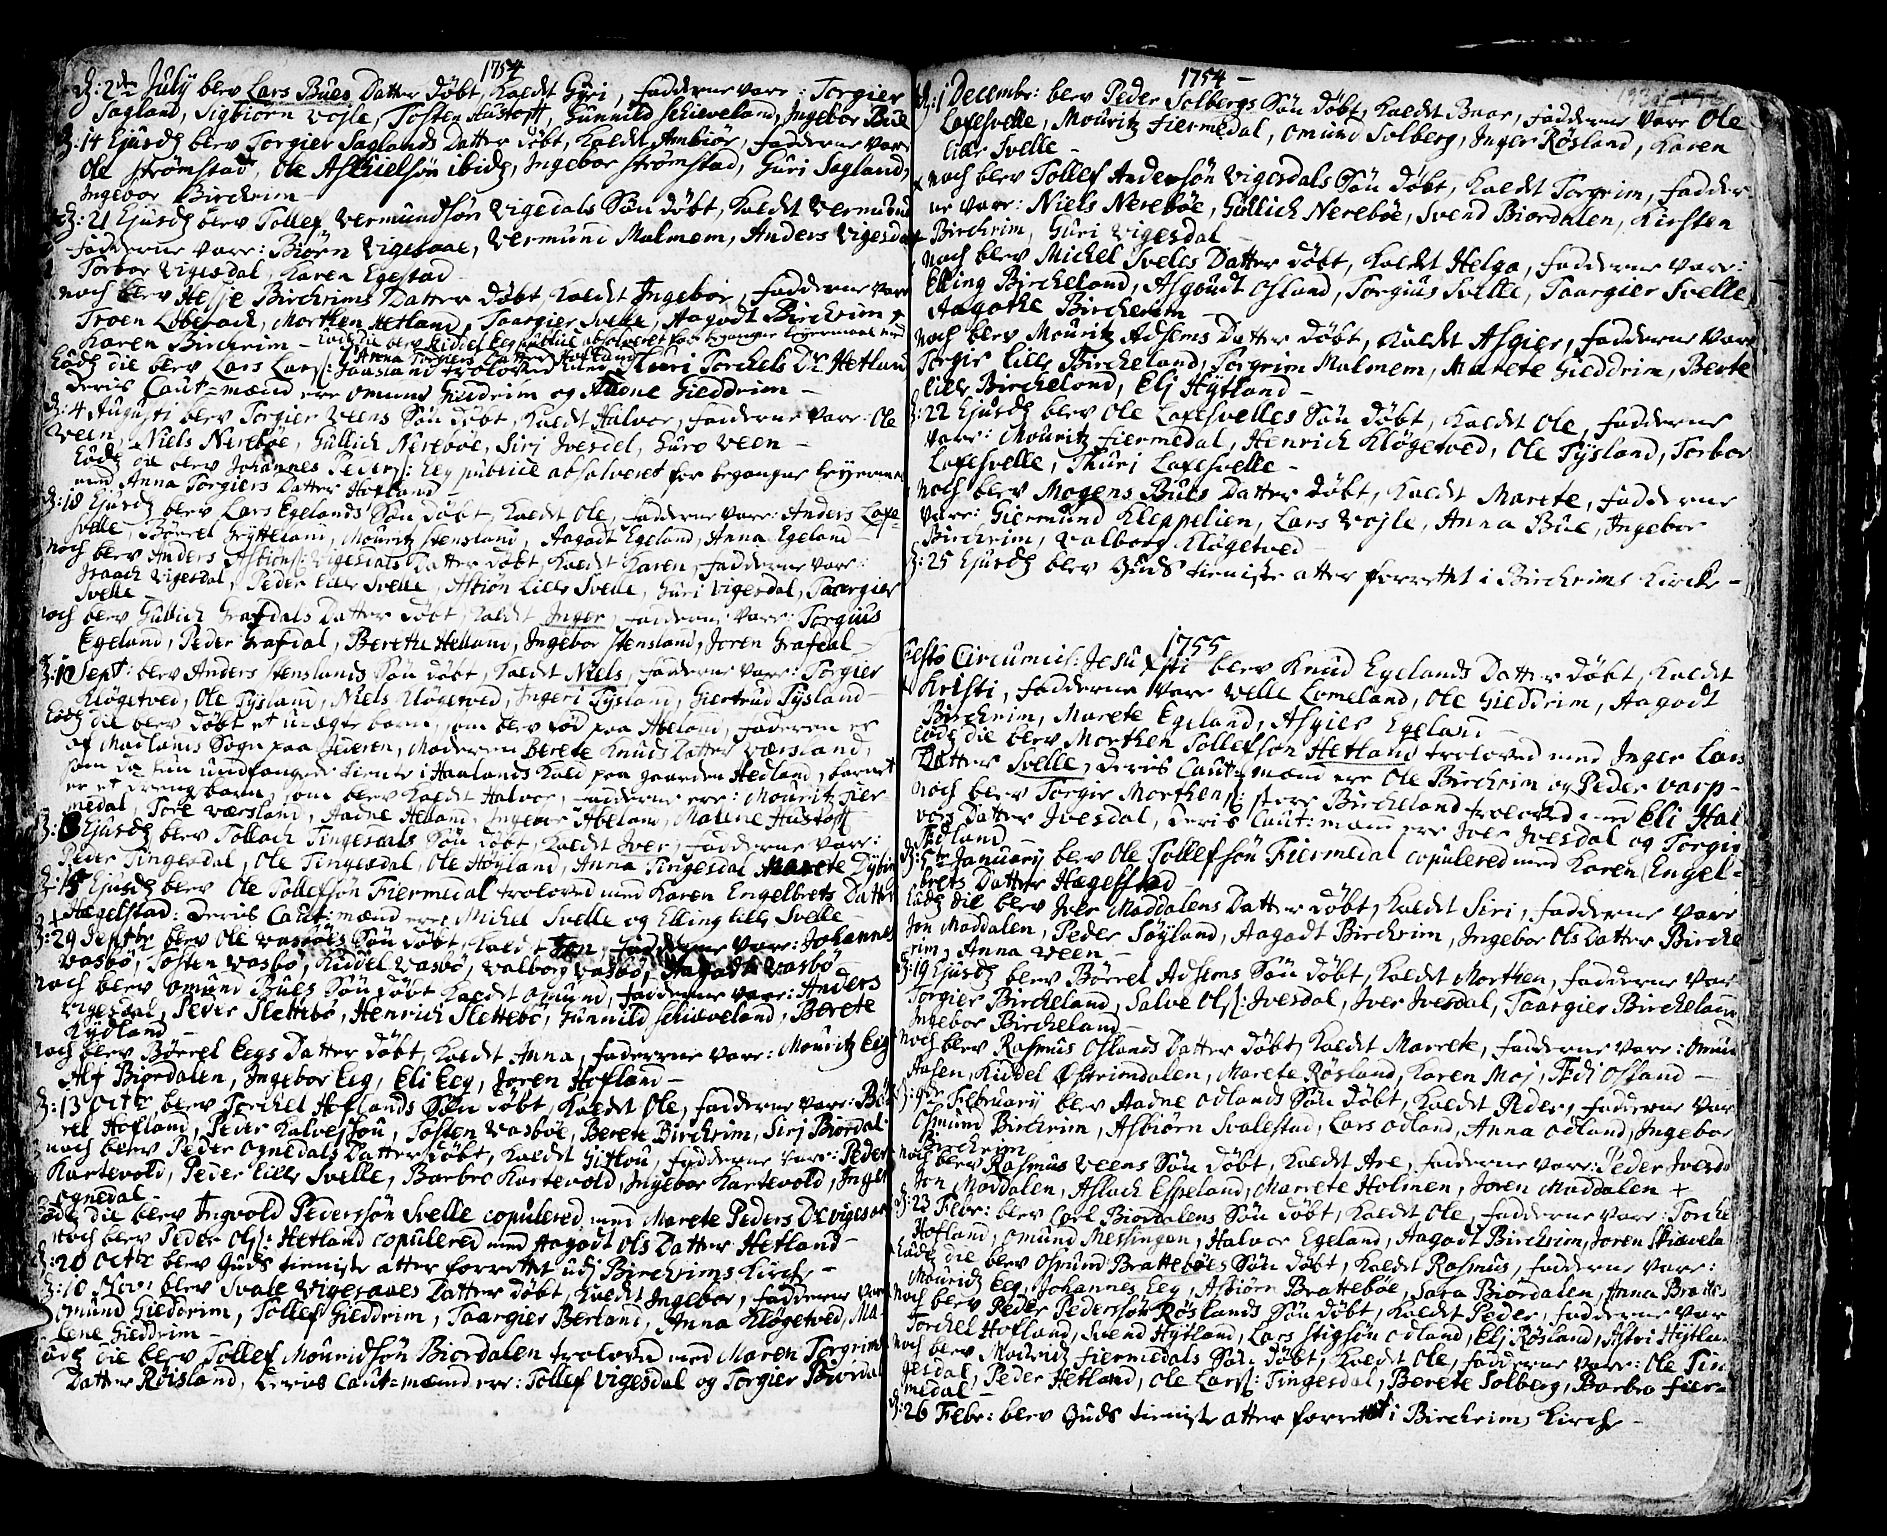 1754
d: 2de July blev Lars Bues Datter döbt, kaldt Guri, fadderne vare: Torgier
Sagland, Sigbiörn Vojle, Tosten Hustoft, Gunnild Schieveland, Ingebor Bue
d: 14 Ejusdq blev Torgier Saglands Datter döbt, kaldt Anbiör, fadderne vare
Ole Strömstad, Ole Askielsön ibidq, Ingebor Strömstad, Guri Sagland,
Ingebor Birchrim
d: 21 Ejusdq blev Tollef Vermundsön Vigedals Sön döbt, kaldt Vermund
fadderne vare: Biörn Vigesaae, Vermund Malmem, Anders Vigesdal
Torbor Vigesdal, Karen Egestad
noch blev Helje Birchrims Datter döbt, kaldt Ingebor, fadderne vare
Troen Löberach, Morthen Hetland, Taargier Svelle, Aagodt Birchrim
Karen Birchrim -
Eodq die blev Lars Lars: trolovet med Guri Torchels Dr Hetland
deris Caut=mænd ere Omund Gieddrim og Aadne Gieddrim -
d: 4 Augusti blev Torgier Veens Sön döbt, kaldt Halvor, fadderne vare: Ole
Veen, Niels Nereböe, Gullich Nereböe, Sirj Ivesdal, Guro Veen -
Eodq die blev Johannes Peders: Eeg publice absolveret for begangne Leyermaal
med Anna Torgiers Datter Hofland -
d: 18 Ejusdq blev Lars Egelands Sön döbt, kaldt Ole, fadderne vare: Anders Laxe-
svelle, Börrel Grytteland, Mouritz Stensland, Aagodt Egeland, Anna Egeland -
noch blev Anders Asbiöns: Vigesdals Datter döbt, kaldt Karen, fadderne vare:
Isaach Vigesdal, Peder Lille Svelle, Asbiön Lille Svelle, Guri Vigesdal, Taargier
Svelle -
noch blev Gullich Grafdals Datter döbt, kaldt Inger, fadderne vare: Torgius
Egeland, Peder Grafdal, Berethe Helland, Ingebor Stensland, Joren Grafdal -
Sept: blev Anders Stenslands Sön döbt, kaldt Niels, fadderne vare: Torgier
Klögetved, Ole Tysland, Niels Klögetved, Ingeri Tysland, Giertrud Tysland
Eodq die blev döbt et uægte barn, som blev föd paa Abeland, faderen er
af Madlands Sogn paa Jederen, Moderen Berete Knuds Datter Værsland,
som da hun undfangede tiente i Haalands Kald paa gaarden Hedland, barnet
er et drenge barn, som blev kaldt Halvor, fadderne ere: Mouritz Fier-
medal, Tore Værsland, Aadne Abeland, Ingebor Abeland, Malene Hustoft
Ejusdq blev Tollach Tingesdals Sön döbt, kaldt Iver, fadderne vare:
Peder Tingesdal, Ole Tingesdal, Ole Höyland, Anna Tingesdal, Marete
d: 15 Ejusdq blev Ole Tollefsön Fiermedal trolovet med Karen Engelbrets Datter
Hægelstad: deris Caut:mænd ere Michel Svelle og Elling Lille Svelle -
d: 29 Septbr blev Ole Vasböes Sön döbt, kaldt Jon, fadderne vare: Johannes
Vasbö, Tosten Vasbö, Kiddel Vasbö, Valborg Vasbö, Aagodt Vasbö -
noch blev Omund Bues Sön döbt, kaldt Omund, fadderne vare: Anders
Vigesdal, Peder Slettebö, Henrich Slettebö, Gunnild Schieveland, Berete
Rydland -
noch blev Börrel Eegs Datter döbt, kaldt Anna, faderne vare: Mouritz Eeg
Alf Biordalen, Ingebor Eeg, Eli Eeg, Joren Hofland -
d: 13 Octbr blev Torchel Hoflands Sön döbt, kaldt Ole, fadderne vare: Bör-
rel Hofland, Peder Kalvestou, Tosten Vasböe, Berete Birchrim, Sirj Biordal
noch blev Peder Ognedals Datter döbt, kaldt Gitlou, fadderne vare: Peder
Kartevold, Peder Lille Svelle, Barbro Kartevold, Ingebor Kartevold,
Ognedal -
Eodq die blev Ingvold Pedersön Svelle copulered med Marete Peders Dr Vigesaae
noch blev Peder Ols: Hetland copulered med Aagodt Ols Datter Hetland -
d: 20 Octbr blev Guds tieniste atter forrettet udj Birchrims Kirche -
d: 10 Nov: blev Svale Vigesaaes Datter döbt, kaldt Ingebor, fadderne vare
Omund Gieddrim, Tollef Gieddrim, Taargier Berland, Anna Klögetved, Ma-
lene Gieddrim -
Eodq die blev Tollef Mouridsön Biordalen trolovd med Maren Torgrims
Datter Röisland, deris Caut=mænd ere: Tollef Vigesdal og Torgier Biordal
1754 -
d: 1 Decembr: blev Peder Solbergs Sön döbt, kaldt Baar, fadderne vare Ole
Laxesvelle, Mouritz Fiermedal, Omund Solberg, Inger Røsland, Karen
Lille Svelle -
noch blev Tollef Andersön Vigesdals Sön döbt, kaldt Torgrim, fadder-
ne vare: Niels Nereböe, Gullich Nereböe, Svend Biordalen, Kirsten
Birchrim, Guri Vigesdal -
noch blev Michel Sveles Datter döbt, kaldt Helga, fadderne vare:
Elling Bircheland, Asgoudt Osland, Torgius Svelle, Taargier Svelle,
Aagothe Birchrim
noch blev Mouritz Adsems Datter döbt, kaldt Asgier, fadderne vare
Torgir Lille Bircheland, Torgrim Malmem, Marete Gieddrim, Berte
Lille Bircheland, Elj Hytland -
d: 22 Ejusdq blev Ole Laxesvelles Sön döbt, kaldt Ole, fadderne
vare: Mouritz Fiermedal, Henrich Klögetved, Ole Tysland, Torbor
Laxesvelle, Thuri Laxesvelle -
noch blev Mogens Bues Datter döbt, kaldt Marete, fadderne
vare: Giermund Kleppelien, Lars Vojle, Anna Bue, Ingebor
Birchrim, Valborg Klögetved -
d: 25 Ejusdq blev Guds tieniste atter forrettet i Birchrims Kirche -
1755
Festo Circumcis: Jesu Xsti blev Knud Egelands Datter döbt, kaldt
Kristi, fadderne vare Velle Lomeland, Ole Gieddrim, Aagodt
Birchrim, Marete Egeland, Asgier Egeland -
Eodq die blev Morthen Tollefsön Hetland troloved med Inger Lars
Datter Svelle, deris Caut=mænd ere Ole Birchrim og Peder Varp-
noch blev Torgir Morthens: store Bircheland troloved med Eli Hal-
vors Datter Ivesdal, deris Caut:mænd ere Iver Ivesdal og Torgir
Ædland
d: 5te January blev Ole Tollefsön Fiermedal copulered med Karen Engel-
brets Datter Hægelstad -
Eodq die blev Iver Maddalens Datter döbt, kaldt Siri, fadderne vare
Jon Maddalen, Peder Söyland, Aagodt Birchrim, Ingebor Ols Datter Birche-
rim, Anna Veen -
d: 19 Ejusdq blev Börrel Adsems Sön döbt, kaldt Morthen, fadderne vare
Torgier Bircheland, Salve Ols: Ivesdal, Iver Ivesdal, Taargier Bircheland
Ingebor Bircheland -
noch blev Rasmus Oslands Datter döbt, kaldt Marrete, fadderne vare: Omund
Aasen, Kiddel Østrimdalen, Marete Røsland, Karen Moj, Ædi Osland -
d: 9de February blev Aadne Odlands Sön döbt, kaldt Peder, fadderne vare
Osmund Birchrim, Asbiörn Svalestad, Lars Odland, Anna Odland, Ingebor
Birchrim
noch blev Rasmus Veens Sön döbt, kaldt Are, fadderne vare: Peder Ivesdal
Jon Maddalen, Aslach Espeland, Marrete Holmen, Joren Maddalen +
d: 23 Febr: blev Carl Biordalens Sön döbt, kaldt Ole, fadderne vare: Torchel
Hofland, Omund Messingen, Halvor Egeland, Aagodt Birchrim, Joren Skiævela
Eodq die blev Osmund Bratteböes Sön döbt, kaldt Rasmus, fadderne vare:
Mouridz Eeg, Johannes Eeg, Asbiörn Bratteböe, Sara Biordalen, Anna Bratteb
noch blev Peder Pedersön Røslands Sön döbt, kaldt Peder, fadderne vare
Torchel Hofland, Svend Hytland, Lars Stigsön Odland, Elj Røsland, Astri Hytland
noch blev Mouridz Fiermedals Sön döbt, kaldt Ole, fadderne vare: Ole Tin-
gesdal, Peder Hetland, Ole Lars: Tingesdal, Berete Solberg, Barbro Fier-
medal -
d: 26 Febr: blev Guds tieniste atter forrettet i Birchrims Kirche -